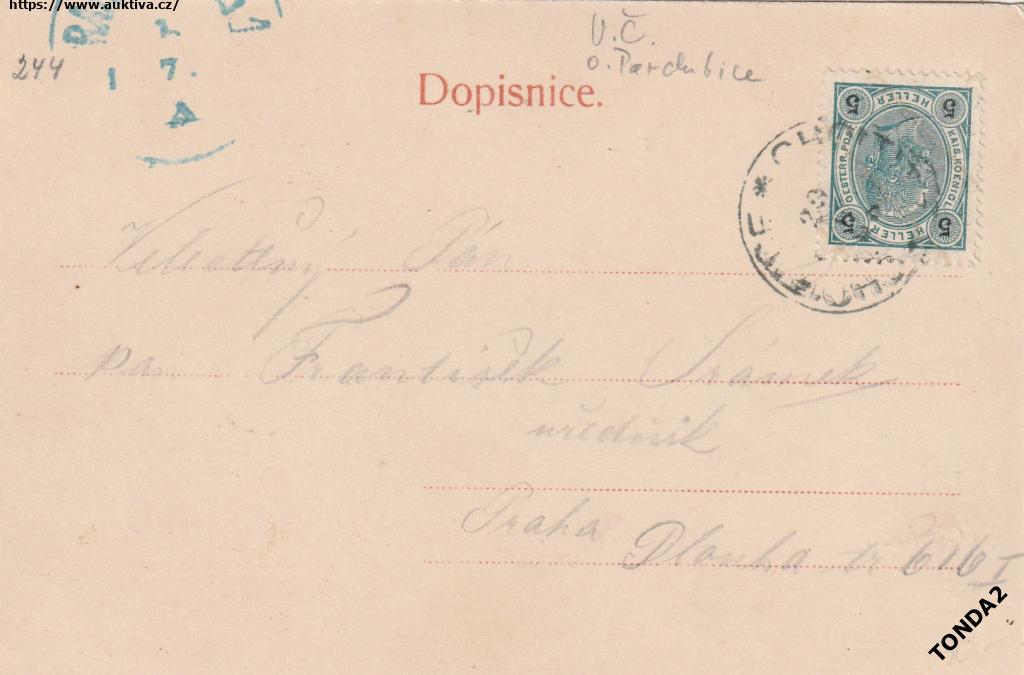 https://www.auktiva.cz/
244
1
7.
V.Č.
o. Pardubice
Dopisnice.
5 HELLER 5
OESTERR. POST
KAIS. KOENIGL.
5 HELLER 5
Pán
pan František Srámek
uředník
Praha
Dlouhá tr 616 I
TONDA2